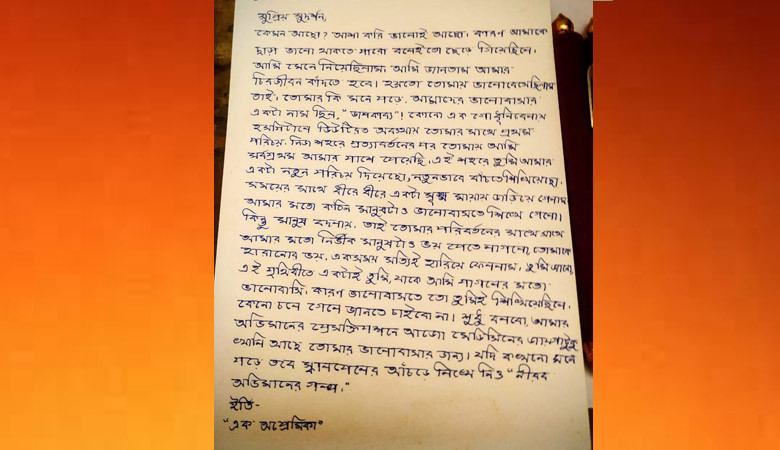 সুপ্রিয় সুদর্শন,
কেমন আছো? আশা করি ভালোই আছো। কারণ আমাকে
ছাড়া ভালো থাকতে পারবে বলেই তো ছেড়ে গিয়েছিলে।
আমি মেনে নিয়েছিলাম। আমি জানতাম আমার
চিরজীবন কাঁদতে হবে। হয়তো তোমায় ভালোবেসেছিলাম
তাই। তোমার কি মনে পড়ে, আমাদের ভালোবাসার
একটা নাম ছিল, ! কোনো এক গোধূলিবেলায়
হসপিটালে ডিউটিরত অবস্থায় তোমার সাথে প্রথম
পরিচয়। নিজ শহরে প্রত্যাবর্তনের পর তোমায় আমি
সর্বপ্রথম আমার পাশে পেয়েছি। এই শহরে তুমি আমার
একটা নতুন পরিচয় দিয়েছো, নতুনভাবে বাঁচতে শিখিয়েছো।
সময়ের সাথে ধীরে ধীরে একটা সূক্ষ্ম মায়ায় জড়িয়ে গেলাম
আমার মতো কঠিন মানুষটাও ভালোবাসতে শিখে গেলো।
কিন্তু মানুষ বদলায়, তাই তোমার পরিবর্তনের সাথে সাথে
আমার মতো নির্ভীক মানুষটাও ভয় পেতে লাগলো, তোমাকে
হারানোর ভয়। একসময় সত্যিই হারিয়ে ফেললাম। তুমি জানো,
এই পৃথিবীতে একটাই তুমি, যাকে আমি পাগলের মতো
ভালোবাসি। কারণ ভালোবাসতে তো তুমিই শিখিয়েছিলে।
কেনো চলে গেলে জানতে চাইবো না। শুধু বলবো, আমার
অভিমানের প্রেসক্রিপশনে আজো মেডিসিনের জায়গাটুকু
খালি আছে তোমার ভালোবাসার জন্য। যদি কখনো মনে
পড়ে তবে আঁচড়ে লিখে নিও "নীরব
অভিমানের গল্প।"
ইতি-
"এক অপ্রেমিকা"